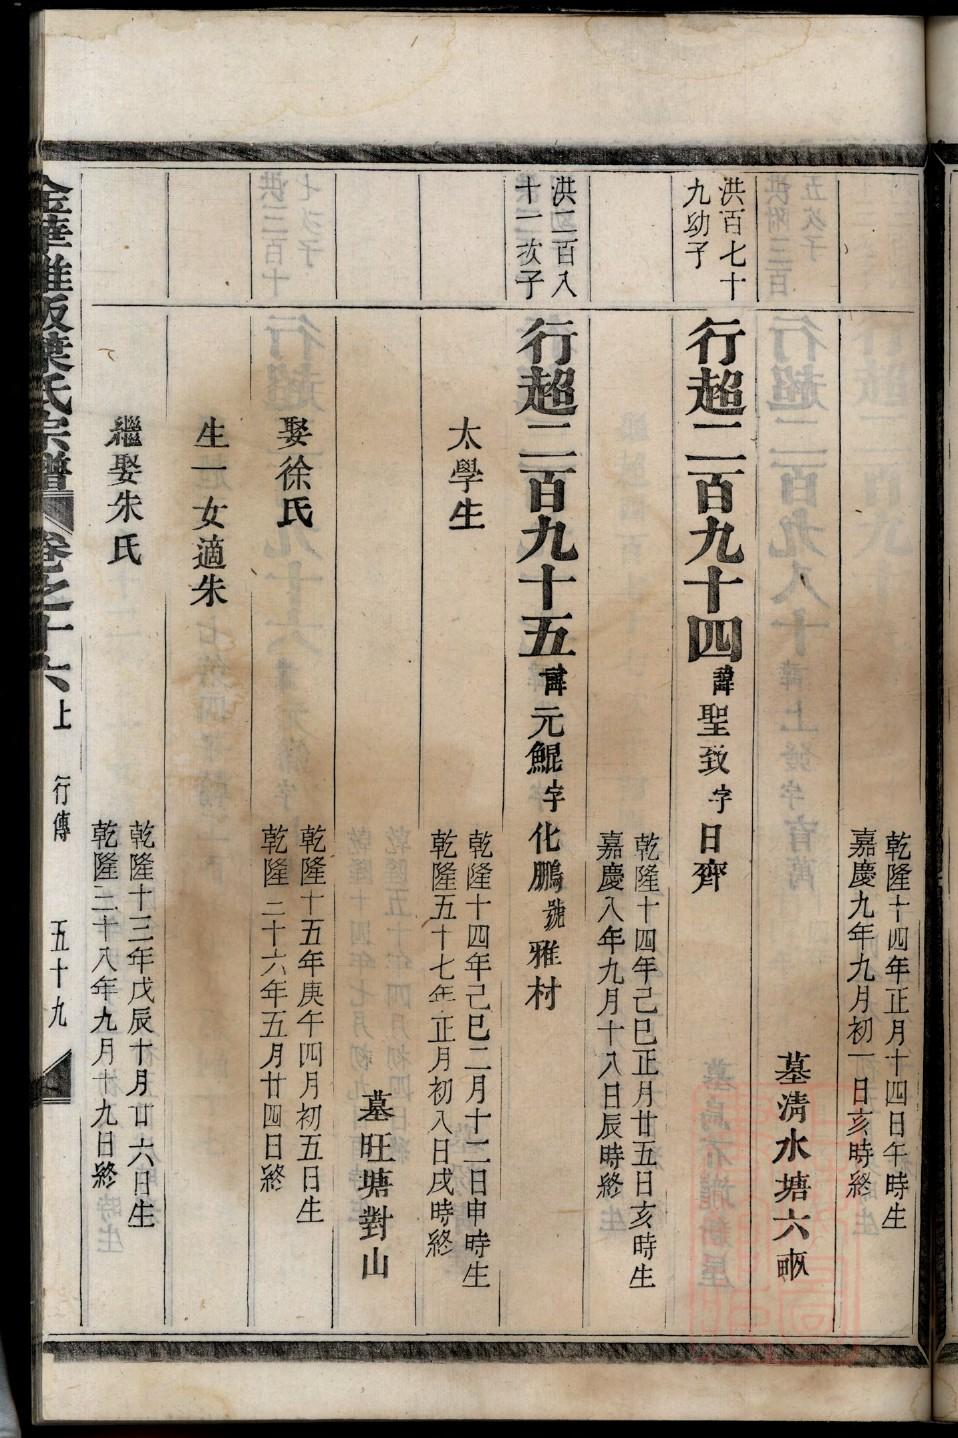 乾隆十四年正月十四日午時生
嘉慶九年九月初一日亥時終
墓清水塘六畝
洪百七十
九幼子
行超二百九十四諱聖致字日齊
乾隆十四年己巳正月廿五日亥時生
嘉慶八年九月十八日辰時終
洪二百八
十一次子
行超二百九十五諱元鯤字化鵬號雅村
太學生
乾隆十四年己巳二月十二日申時生
乾隆五十七年正月初八日戌時終
墓旺塘對山
娶徐氏
乾隆十五年庚午四月初五日生
乾隆二十六年五月廿四日終
生一女適朱
繼娶朱氏
乾隆十三年戊辰十月廿六日生
乾隆二十八年九月十九日終
金華雅阪葉氏宗譜 卷之十六上 行傳 五十九